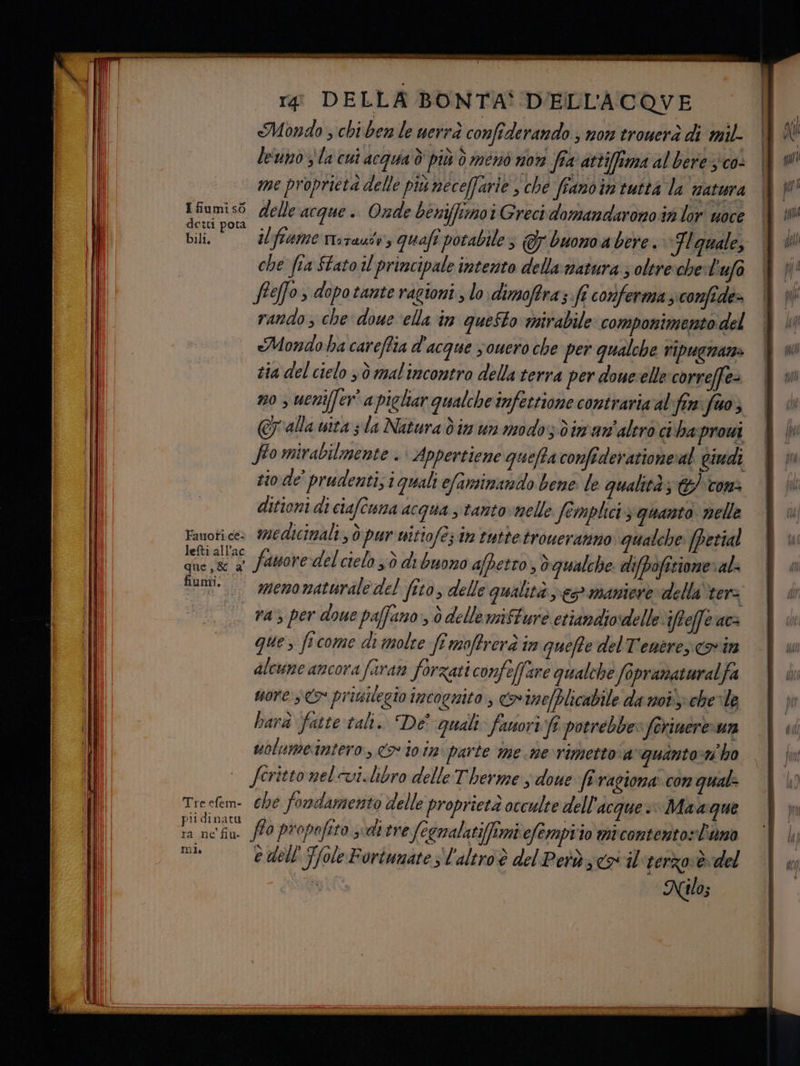 14 DELLA BONTA' DELL'ACQVE
Mondo, chi ben le uerrà considerando, non trouerà di mil-
leuno, la cui acqua ò più ò meno non sia attissima al bere; co-
me proprietà delle più necessarie, che siano in tutta la natura
I fiumi sõ
detti pota
bili.
delle acque. Onde benissimo i Greci domandarono in lor uoce
il fiume ποταμός, quasi potabile, & buono a bere. Il quale,
che sia stato il principale intento della natura, oltre che l'uso
stesso, dopo tante ragioni, lo dimostra; si conferma, conside-
rando, che doue ella in questo mirabile componimento del
Mondo ha carestia d'acque, ouero che per qualche ripugnan-
tia del cielo, ò mal incontro della terra per doue elle corresse-
no, uenisser' a pigliar qualche infettione contraria al fin suo,
& alla uita; la Natura ò in un modo, ò in un'altro ci ha proui
sto mirabilmente. Appertiene questa consideratione al giudi
tio de' prudenti, i quali esaminando bene le qualità, & con-
ditioni di ciascuna acqua, tanto nelle semplici, quanto nelle
Fauori ce-
lesti all'ac
que, & a'
fiumi.
medicinali, ò pur uitiose; in tutte troueranno qualche spetial
fauore del cielo, ò di buono aspetto, ò qualche dispositione al-
meno naturale del sito, delle qualità, & maniere della ter-
ra, per doue passano, ò delle misture etiandio delle istesse ac-
que, si come di molte si mostrerà in queste del Teuere, & in
alcune ancora saran forzati confessare qualche sopranatural fa
uore, & priuilegio incognito, & inesplicabile da noi, che le
harà fatte tali. De' quali fauori si potrebbe scriuere un
uolume intero, & io in parte me ne rimetto a quanto n'ho
scritto nel vi. libro delle Therme, doue si ragiona con qual-
Tre esem-
pii di natu
ra ne' fiu-
mi.
che fondamento delle proprietà occulte dell'acque. Ma a que
sto proposito, di tre segnalatissimi esempi io mi contento: l'uno
è dell' Isole Fortunate, l'altro è del Perù, & il terzo è del
Nilo;